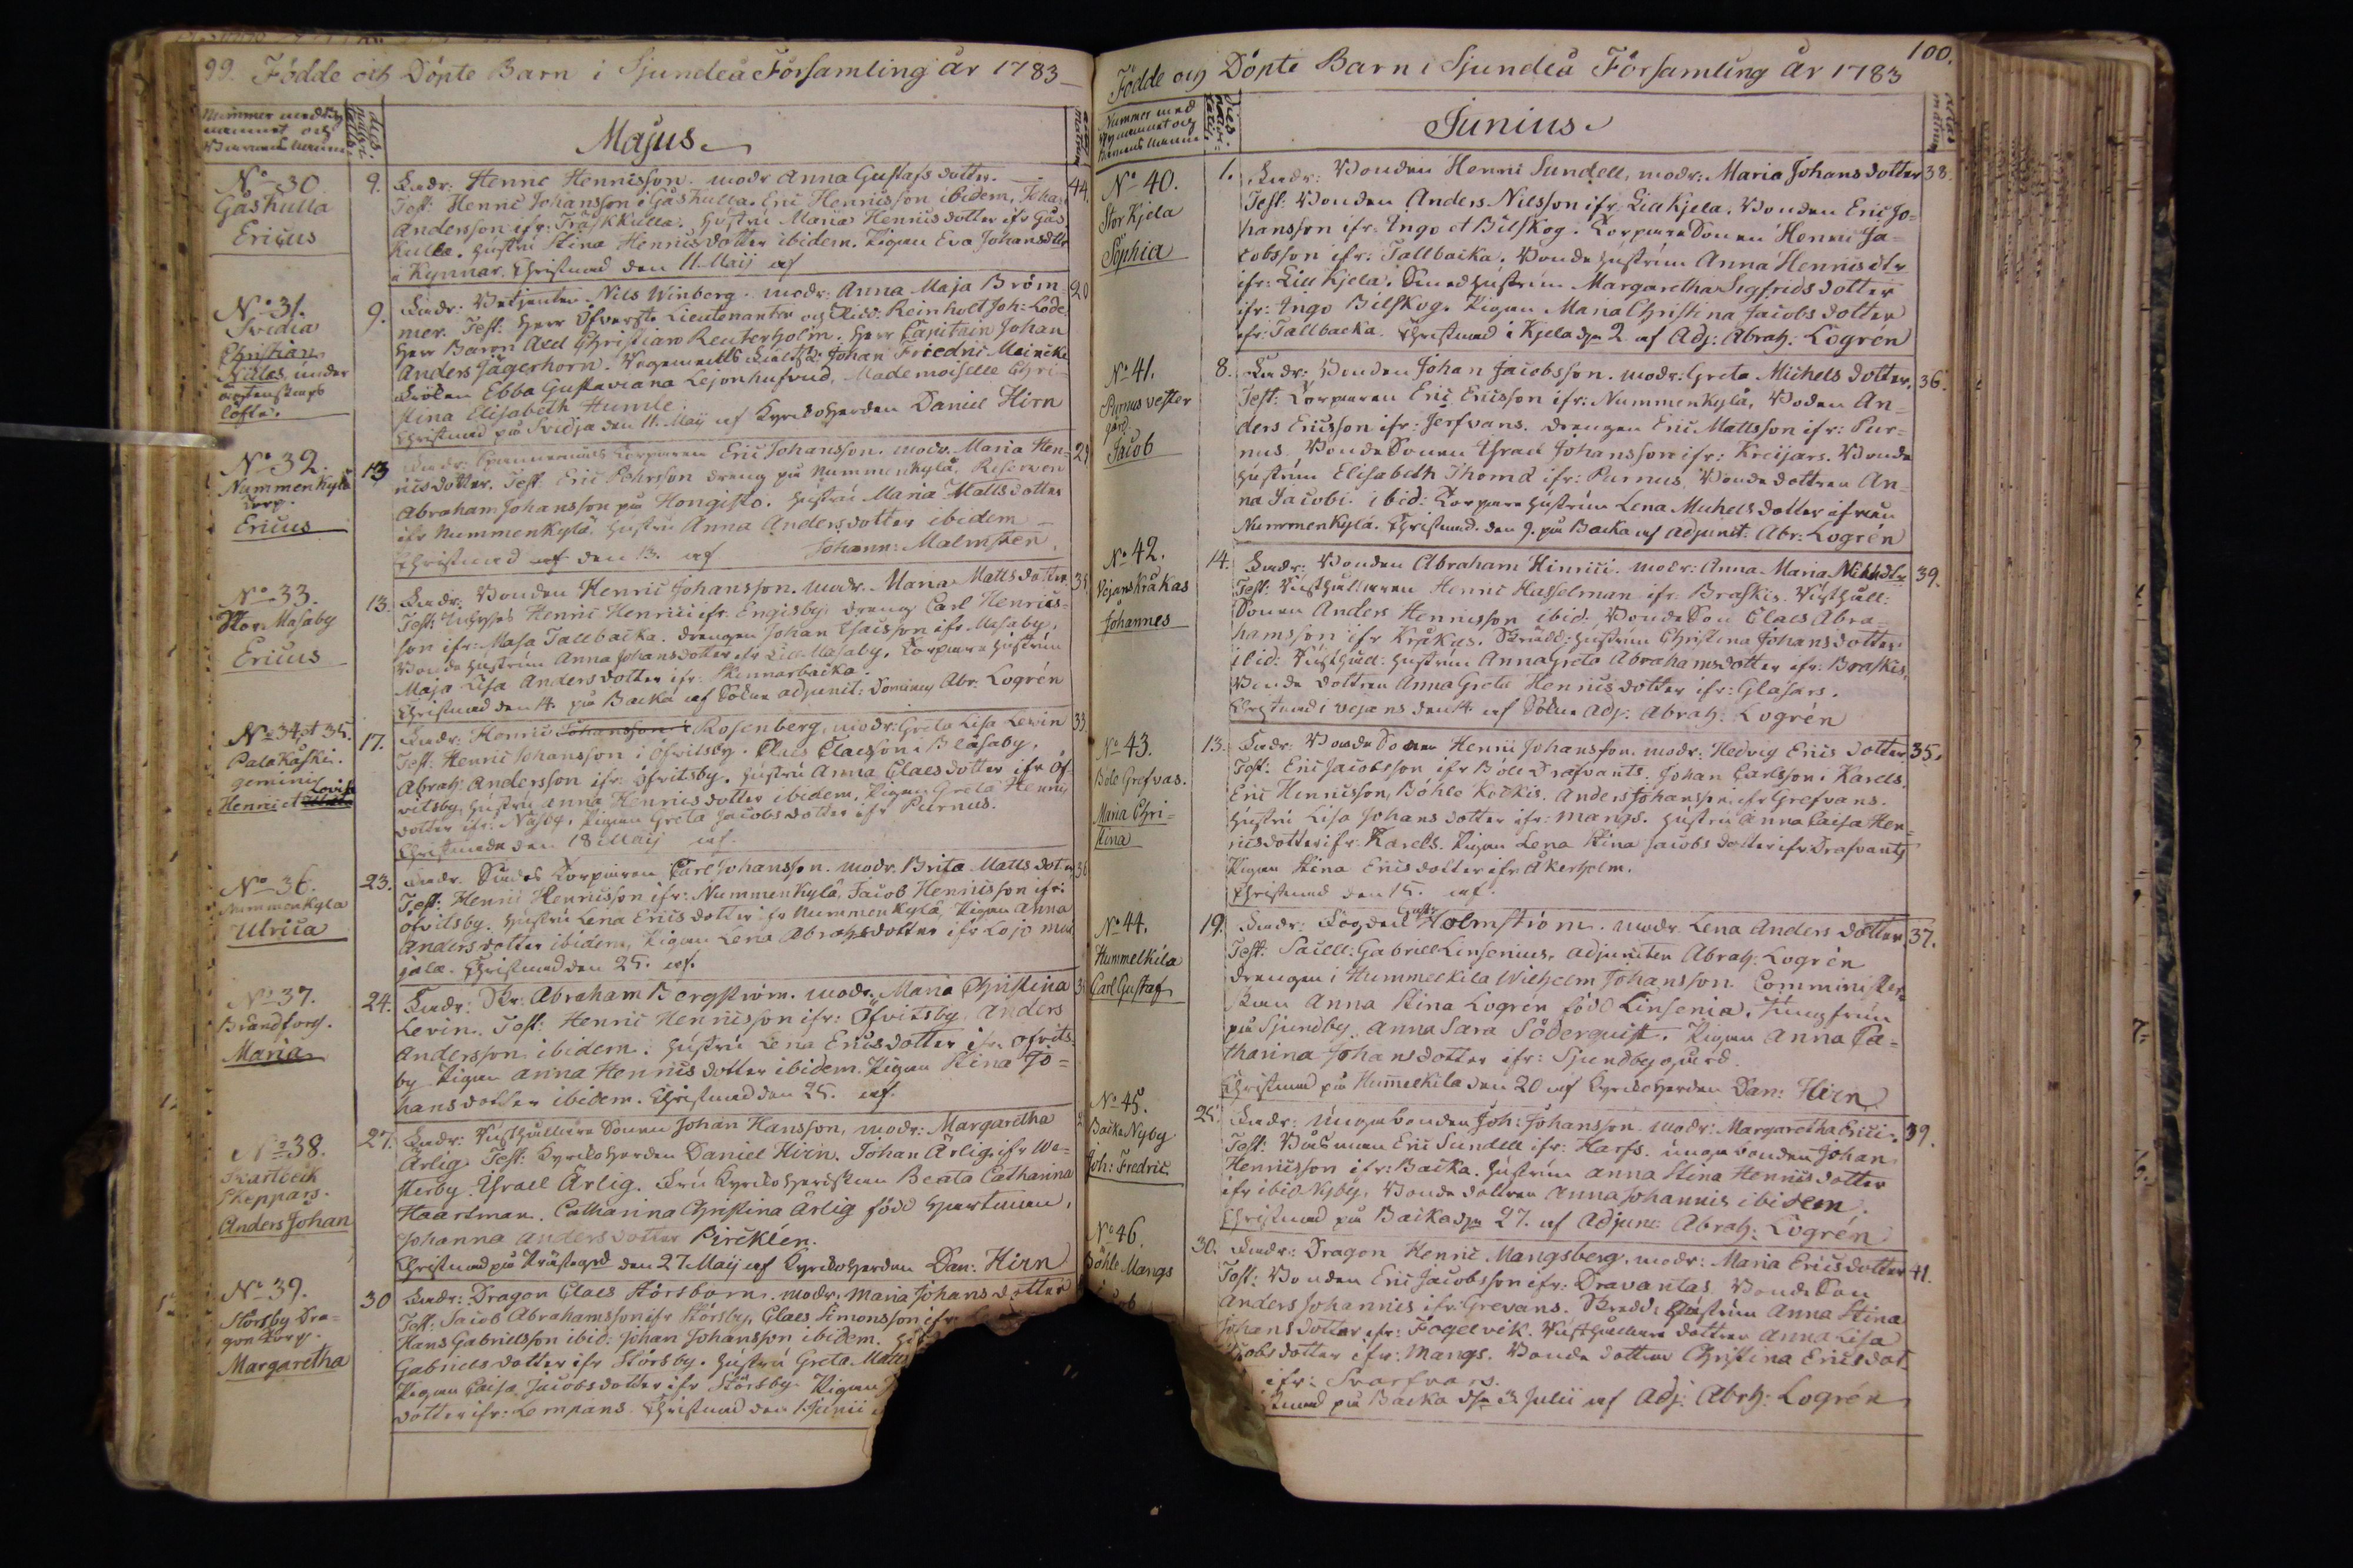 99. Födde och Döpte Barn i Sjundeå Församling år 1783
Majus
No 30.
Gåshulla
Ericus
9. Fadr: Henric Henricsson. modr Anna Gustafs dotter. 44.
Test: Henric Johansson i Gåskulla. Eric Henricsson ibidem, Johan
Andersson ifr: Träskkulla. Hustru Maria Henrics dotter ifr Gås
kulla. Hustru Stina Henricsdotter ibidem. Pigan Eva Johansdotter
i Kynnar. Christnad den 11. Maij af
No 31.
Svidia
Christian
Nicles under
ägtenskaps
löfte.
9. Fadr: Betjenten Nils Winberg. modr: Anna Maja Bröm 20
mer. Test: Herr Öfverste Lieutenanten och Ridd: Reinholt Joh: Lode
Herr Baron Axel Christian Reuterholm. Herr Capitain Johan
Anders Jägerhorn. Johan Friedric Meincke
Fröken Ebba Gustaviana Lejonhufvud. Mademoiselle Chri-
stina Elisabeth Humle.
Christnad på Svidja den 11. Maij af Kyrckoherden Daniel Hirn
No 32.
Nummenkylä
Torp.
Ericus
13 Fadr: Torparen Eric Johansson. modr. Maria Hen- 29
ricsdotter. Test: Eric Pehrsson dreng på Nummenkylä. Reserven
Abraham Johansson på Hongisto. Hustru Maria Matts dotter
ifr Nummenkylä. Hustru Anna Andersdotter ibidem
Christnad den 13. af Johann: Malmsten.
No 33.
Stor Masaby
Ericus
13. Fadr: Bonden Henric Johansson. modr. Maria Matts dotter
Test: Henric Henrici ifr. Engisby. dreng Carl Henrics-
son ifr: Masa Tallbacka. drengen Johan Isacsson ifr Masaby.
Bonde hustrun Anna Johansdotter ifr Lill Masaby. Torpare hustrun
Maja Lisa Anders dotter ifr: Skinnarbacka.
Christnad den 14. på Backa af adjunct: Abr: Logrén
No 34 et 35.
Palakåski.
gemini
Henric et Lovisa
17. Fadr: Henric Johansson Rosenberg. modr: Greta Lisa Levin 33
Test: Henric Johansson i Öfvitsby. Claes Claesson i Blåsaby.
Abrah: Andersson ifr: Öfvitsby. Hustru Anna Claes dotter ifr Öf
vitsby. Hustru Anna Henrics dotter ibidem, Pigan Greta Henrics
dotter ifr: Näsby. Pigan Greta Jacobs dotter ifr Purnus.
Christnade den 18 Maij af.
No 36.
Nummenkylä
Ulrica
23. Fadr. Torparen Carl Johansson. modr. Brita Matts doter
Test: Henric Henricsson ifr: Nummenkylä, Jacob Henricsson ifr:
Öfvitsby. Hustru Lena Erics dotter ifr Nummenkylä, Pigan Anna
Anders dotter ibidem, Pigan Lena Abrahs dotter ifr Lojo
Christnad den 25. af.
No 37.
Brandtorp.
Maria
24. Fadr: Abraham Bergström. modr. Maria Christina
Levin. Test: Henric Henricsson ifr: Öfvitsby. Anders
Andersson ibidem. Hustru Lena Ericsdotter ifr Öfvits
by. Pigan Anna Henrics dotter ibidem. Pigan Stina Jo=
hansdotter ibidem. Christnad den 25. af.
No 38.
Svartbäck
Skeppars.
Anders Johan
27. Fadr: Rusthållare Sonen Johan Hansson, modr: Margaretha
Ärlig. Test: Kyrckoherden Daniel Hirn. Johan Ärlig. ifr We=
sterby. Israel Ärlig. Fru Kyrckoherdskan Beata Catharina
Haartman. Catharina Christina Ärlig född Hartman.
Johanna Andersdotter Pircklén.
Christnad på Prästgård den 27 Maij af Kyrckoherden Dan: Hirn
No 39.
Störsby Dra=
gon Torp.
Margaretha
30 Fadr: Dragon Claes Störsborn. modr: Maria Johans dotter
Test: Jacob Abrahamsson ifr Störsby, Claes Simonsson ifr
Hans Gabrielsson ibid: Johan Johansson ibidem.
Gabriels dotter ifr Störsby. Hustru Greta Matts
Pigan Caisa Jacobsdotter ifr Störsby. Pigan
dotter ifr: Lempans. Christnad den 1. Junii
100.
Födde och Döpte Barn i Sjundeå Församling år 1783
Nummer med
Junius
No 40.
Stor Kjela
Sophia
1. Fadr: Bonden Henric Sundell, modr: Maria Johans dotter 38.
Test: Bonden Anders Nilsson ifr Lillkjela. Bonden Eric Jo=
hansson ifr: Ingo et Bilskog. Torpare Sonen Henric Ja=
cobsson ifr: Tallbacka. Bonde hustrun Anna Henricsdtr
ifr: Lill Kjela. Smed hustrun Margaretha Sigfrids dotter
ifr: Ingo Bilskog. Pigan Maria Christina Jacobs dotter
ifr: Tallbacka. Christnad i Kjela dn 2. af Adj: Abrah: Logrén
No 41.
Purnus vester
gård
Jacob
8. Fadr: Bonden Johan Jacobsson. modr: Greta Michels dotter. 36.
Test: Torparen Eric Ericsson ifr: Nummenkylä, Boden An=
ders Ericsson ifr: Jerfvans. drengen Eric Mattsson ifr: Pur=
nus. Bonde Sonen Israel Johansson ifr: Kreijars. Bonde
hustrun Elisabeth Thomæ ifr: Purnus. Bonde dottren An=
na Jacobi. ibid: Torpare hustrun Lena Michels dotter ifrån
Nummenkylä. Christnad. den 9. på Backa af Adjunct: Abr: Logrén
No 42.
Vejans Kråkas
Johannes
14. Fadr: Bonden Abraham Hinrici. modr: Anna Maria Mickdtr 39.
Test: Rusthållaren Henric Hasselman ifr: Braskis. Rusthåll:
Sonen Anders Henricsson ibid: Bonde Son Claes Abra
hamsson ifr Kråkas. Skrädd: hustrun Christina Johans dotter
ibid: Rusthåll: hustrun Anna Greta Abrahamsdotter ifr: Braskis,
Bonde dottren Anna Greta Henrics dotter ifr: Glasars.
Christnad i Vejans den 14 af Adj: Abrah: Logrén
No 43.
Böle Grefvas.
Maria Chri=
stina
13. Fadr: Bonde Sonen Henric Johansson. modr: Hedvig Erics dotter 35.
Test: Eric Jacobsson ifr Böle Drafvants. Johan Carlsson i Karels.
Eric Henricsson, Böhle Kockis. Anders Johansson ifr Grefvans.
Hustru Lisa Johans dotter ifr: Mangs. Hustru Anna Caisa Hen=
ricsdotter ifr Karels. Pigan Lena Stina Jacobs dotter ifr Drafvants
Pigan Stina Erics dotter ifr Åkerholm.
Christnad den 15. af.
No 44.
Hummelkila
Carl Gustaf
19. Fadr: Fogden Holmström. modr. Lena Anders dotter 37.
Test: Gabriel Linsenius, adjuncten Abrah: Logrén
drengen i Hummelkila Wilhelm Johansson. Comminister
skan Anna Stina Logren född Linsenia. Jungfrun
på Sjundby Anna Sara Söderquist. Pigan Anna Ca=
tharina Johansdotter ifr: Sjundby gård.
Christnad på Hummelkila den 20 af Kyrckoherden Dan: Hirn
No 45.
Backa Nyby
Joh: Fredric
25. Fadr: unga bonden Joh: Johansson. modr: Margaretha Erici. 39.
Test: Båtsman Eric Sundell ifr: Harfs. unga bonden Johan
Henricsson ifr: Backa. Hustrun Anna Stina Henricsdotter
ifr ibid Nyby, Bonde dottren Anna Johannis ibidem.
Christnad på Backa dn 27. af Adjunc: Abrah: Logrén
No 46.
Böhle Mangs
30. Fadr: Dragon Henric Mangsberg. modr: Maria Ericsdotter 41.
Test: Bonden Eric Jacobsson ifr: Dravantas. Bonde Son
Anders Johannis ifr: Grevans. Skredd: hustrun Anna Stina
Johans dotter ifr: Fogelvik. Rusthållare dottren Anna Lisa
Jacobs dotter ifr: Mangs. Bonde dottren Christina Ericsdot
ifr: Svartvars.
Christnad på Backa dn 3 Julii af Adj: Abrh: Logrén